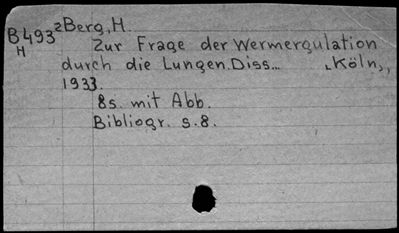 B493 ²Berg, H.
H
Zur Frage der Wermergulation
durch die Lungen. Diss... ˻Köln˼,
1933.
8s. mit Abb.
Bibliogr. s. 8.